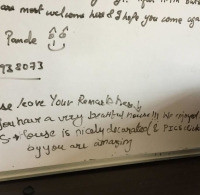 are most welcome here & I hope you come again
Pande
938073
se leave Your Remarks here
You have a very beatiful house!!! We enjoyed
House is nicely decorated & Pics click
by you are amazing